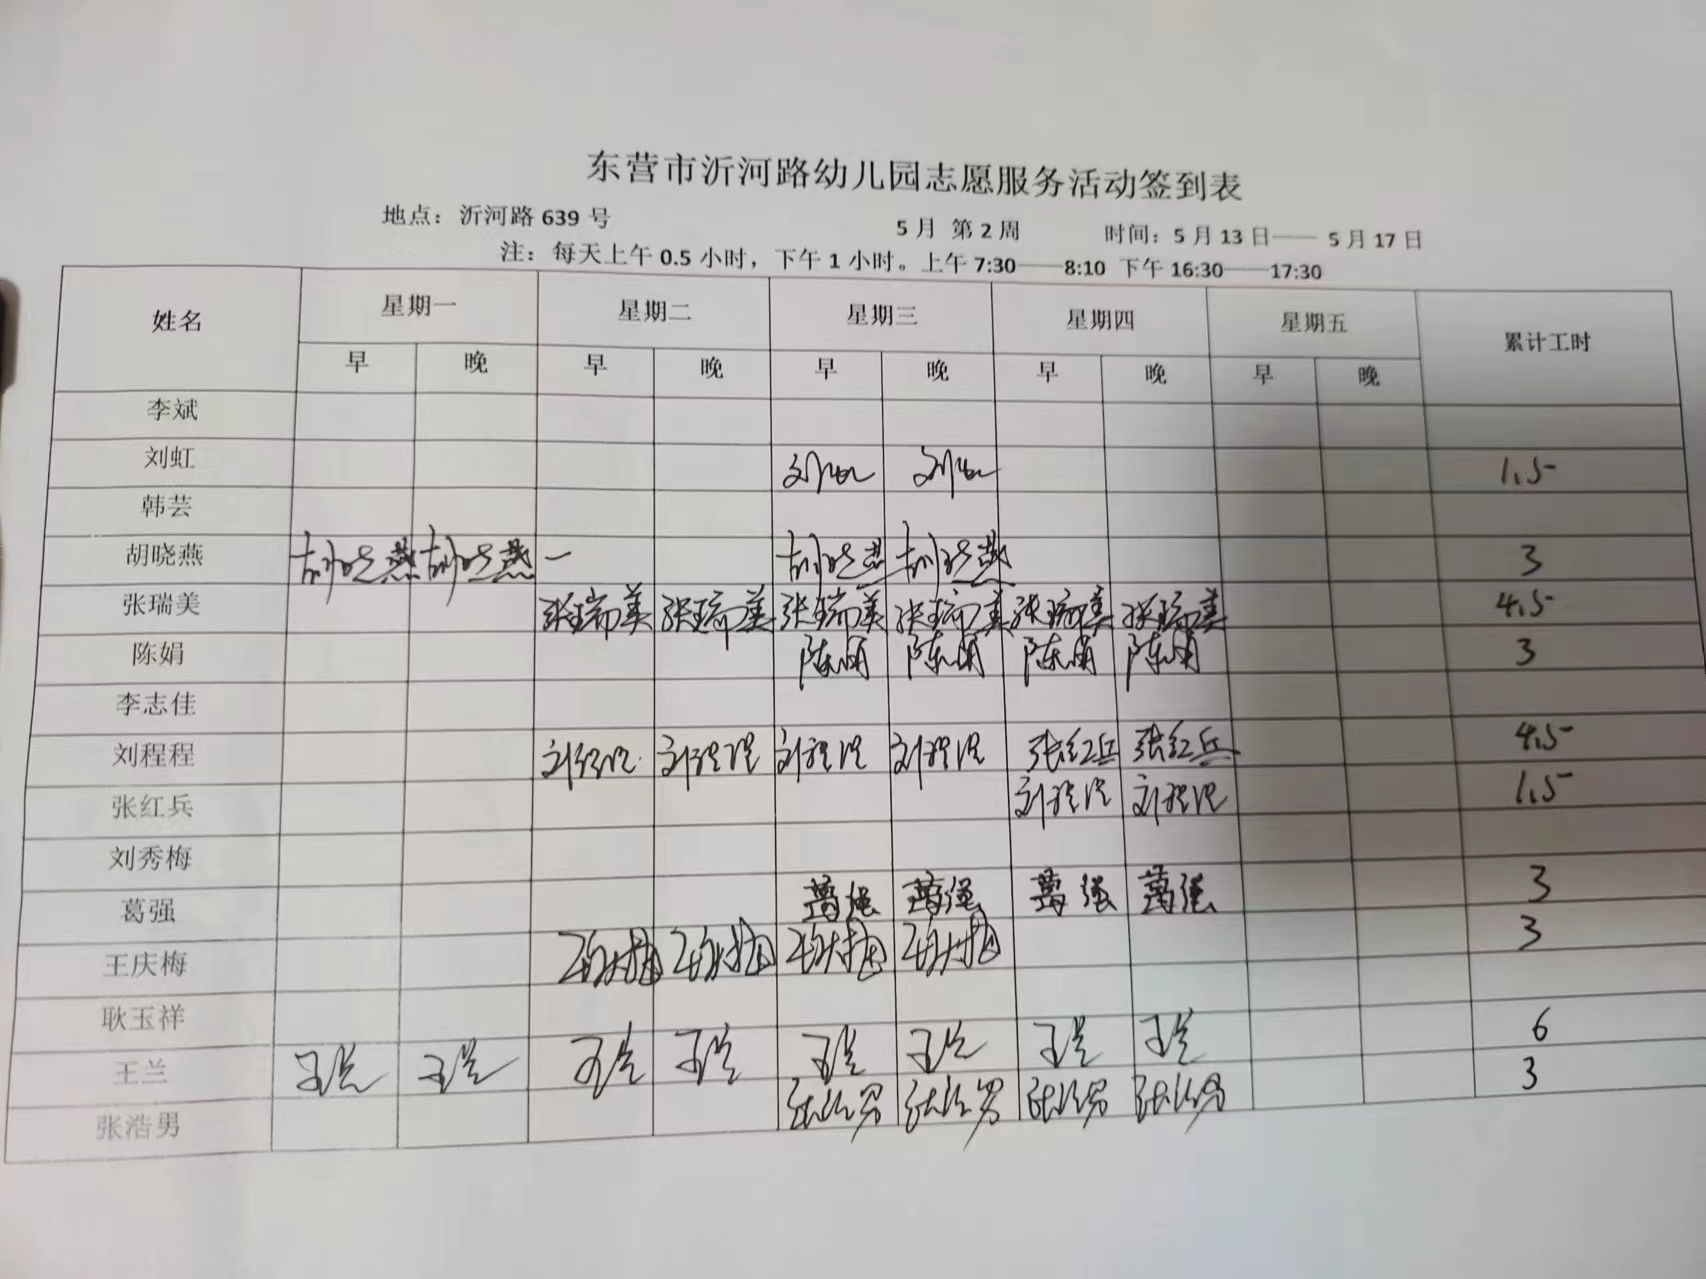 东营市沂河路幼儿园志愿服务活动签到表
地点：沂河路 639 号 5 月 第 2 周 时间：5 月 13 日—— 5 月 17 日
注：每天上午 0.5 小时，下午 1 小时。上午 7:30——8:10 下午 16:30——17:30
姓名 星期一 星期二 星期三 星期四 星期五 累计工时
早 晚 早 晚 早 晚 早 晚 早 晚
李斌
刘虹 刘虹 刘虹 1.5
韩芸
胡晓燕 胡晓燕 胡晓燕 一 胡晓燕 胡晓燕 3
张瑞美 张瑞美 张瑞美 张瑞美 张瑞美 张瑞美 张瑞美 4.5
陈娟 陈娟 陈娟 陈娟 陈娟 3
李志佳
刘程程 刘程程 刘程程 刘程程 刘程程 张红兵 张红兵 4.5
张红兵 刘程程 刘程程 1.5
刘秀梅
葛强 葛强 葛强 葛强 葛强 3
王庆梅 王庆梅 王庆梅 王庆梅 王庆梅 3
耿玉祥
王兰 王兰 王兰 王兰 王兰 王兰 王兰 王兰 王兰 6
张浩男 张浩男 张浩男 张浩男 张浩男 3